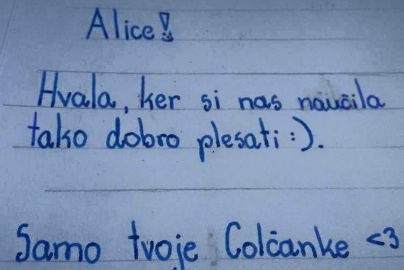 Alice!
Hvala, ker si nas naučila
tako dobro plesati :).
Samo tvoje Colčanke <3